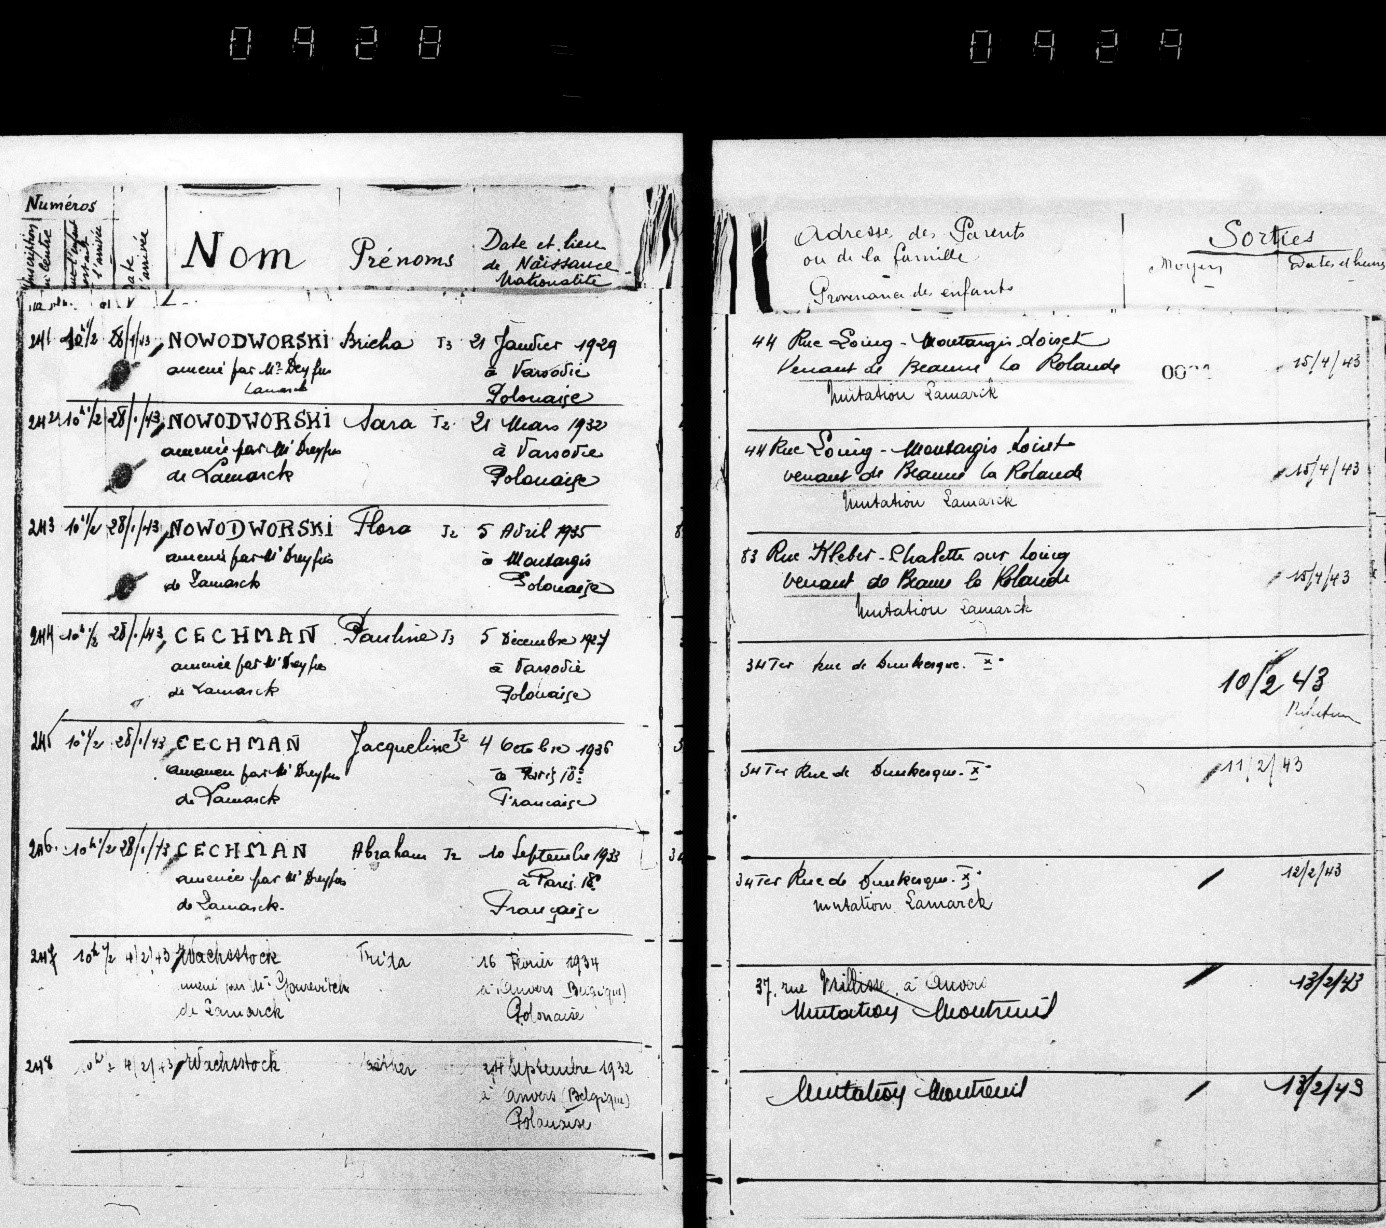 0428
0429
Numéros
Inscription
au centre
Date
d'arrivée
Nom
Prénoms
Date et lieu
de Naissance
Nationalité
241 10h1/2 28/1/43 NOWODWORSKI Bricha T3 21 Janvier 1929
amené par Mr Dreyfus
Lamarck
à Varsovie
Polonaise
242 10h1/2 28/1/43 NOWODWORSKI Sara T2 21 Mars 1932
amenée par Mr Dreyfus
de Lamarck
à Varsovie
Polonaise
243 10h1/2 28/1/43 NOWODWORSKI Flora T2 5 Avril 1935
amenée par Mr Dreyfus
de Lamarck
à Montargis
Polonaise
244 10h1/2 28/1/43 CECHMAN Pauline T3 5 Décembre 1927
amenée par Mr Dreyfus
de Lamarck
à Varsovie
Polonaise
245 10h1/2 28/1/43 CECHMAN Jacqueline T2 4 Octobre 1936
amenée par Mr Dreyfus
de Lamarck
à Paris 18e
Française
246 10h1/2 28/1/43 CECHMAN Abraham T2 10 Septembre 1933
amenée par Mr Dreyfus
de Lamarck
à Paris 18e
Française
247 10h1/2 4/2/43 Wachsstock Frida 16 Février 1934
mené par Mr Gourevitch
de Lamarck
à Anvers (Belgique)
Polonaise
248 10h1/2 4/2/43 Wachsstock Esther 24 Septembre 1932
à Anvers (Belgique)
Polonaise
Adresse des Parents
ou de la famille
Provenance des enfants
Sorties
Moyen
Date et heure
44 Rue Loing - Montargis Loiret
Venant de Beaune La Rolande 15/4/43
Mutation Lamarck
44 Rue Loing - Montargis Loiret
venant de Beaune la Rolande 15/4/43
Mutation Lamarck
83 Rue Kleber - Chalette sur Loing
venant de Beaune la Rolande 15/4/43
Mutation Lamarck
34 Ter Rue de Dunkerque. X°
10/2 43
34 Ter Rue de Dunkerque. X° 11/2/43
34 Ter Rue de Dunkerque. X° 12/2/43
mutation Lamarck
37, rue à Anvers 13/2/43
Mutation Montreuil
Mutation Montreuil 13/2/43